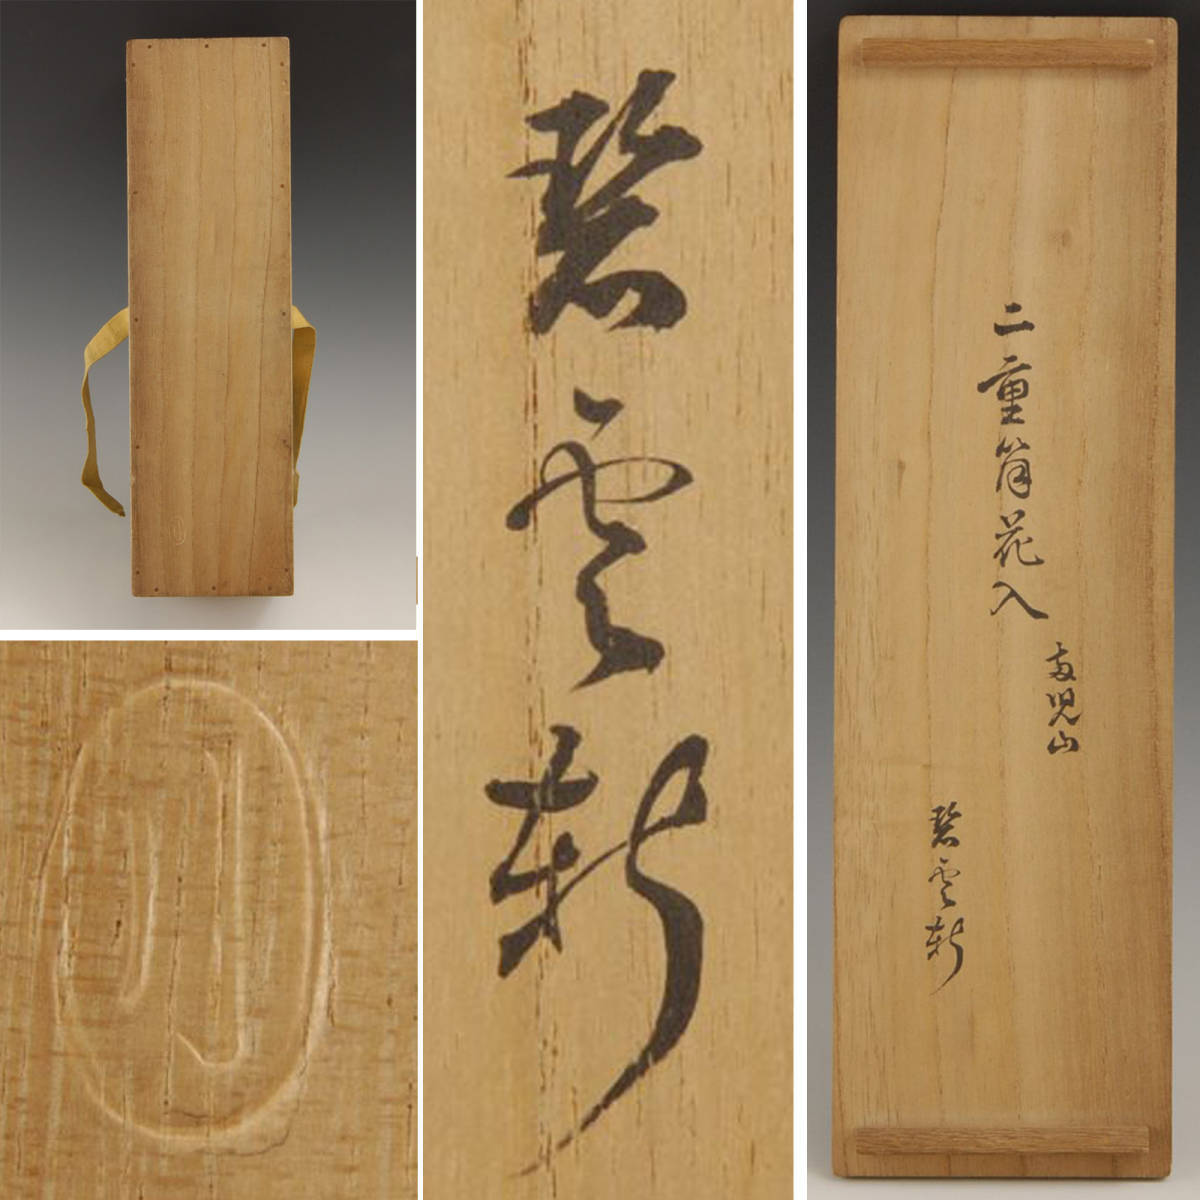 碧雲軒
二重筒花入
両児山
碧雲軒